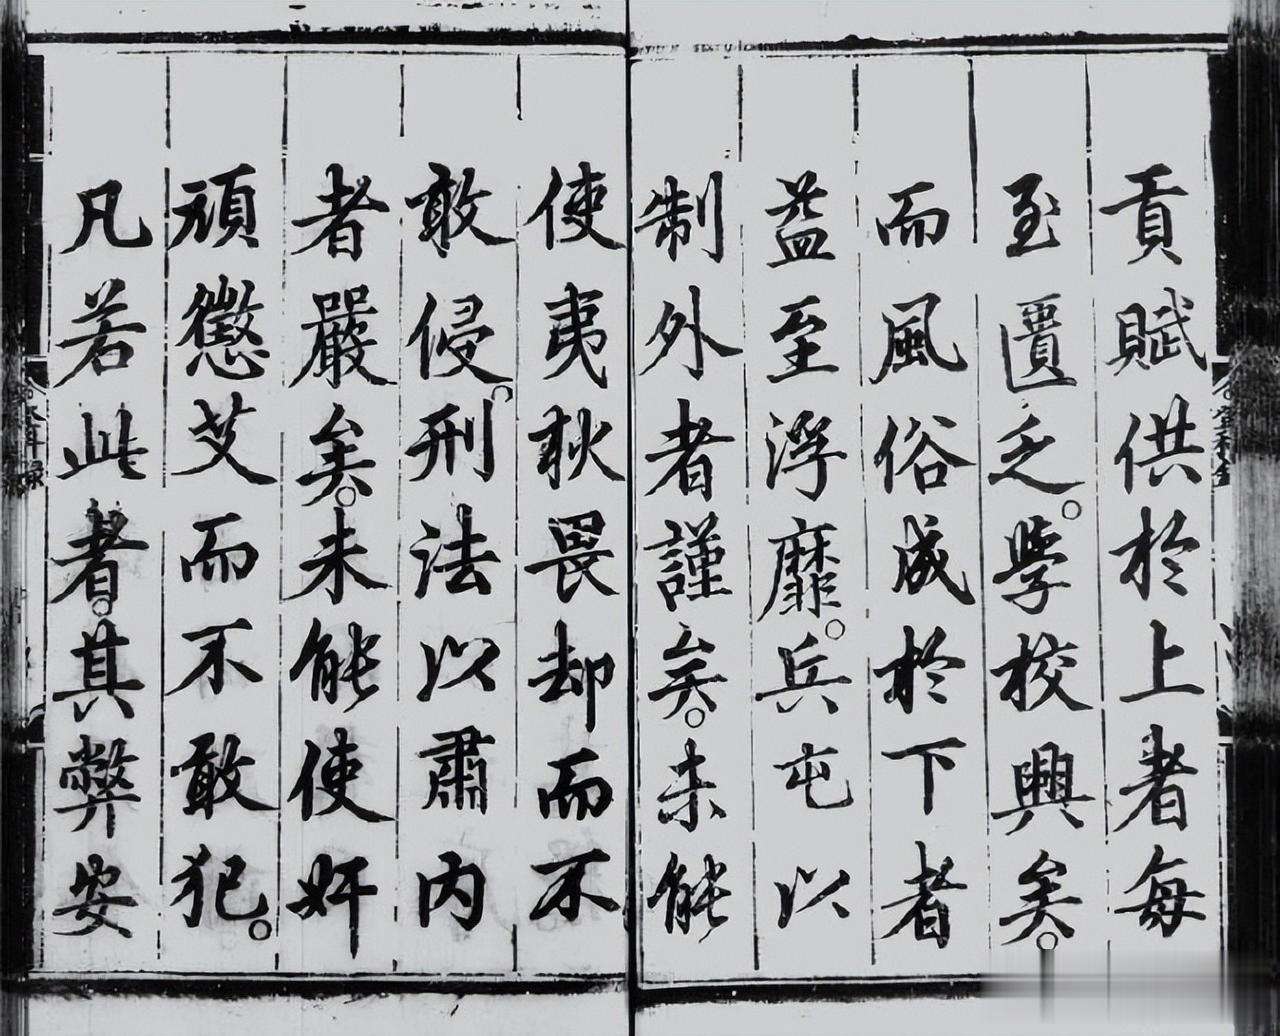 貢賦供於上者每
至匱乏。學校興矣。
而風俗成於下者
益至浮靡。兵屯以
制外者謹矣。未能
使夷狄畏却而不
敢侵。刑法以肅內
者嚴矣。未能使奸
頑懲艾而不敢犯。
凡若此者。其弊安